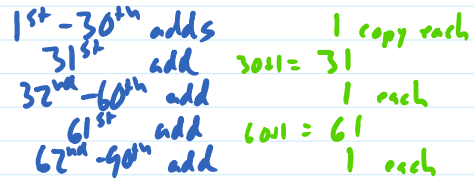 1st - 30th adds 1 copy each
31st add 30+1 = 31
32nd - 60th add 1 each
61st add 60+1 = 61
62nd - 90th add 1 each